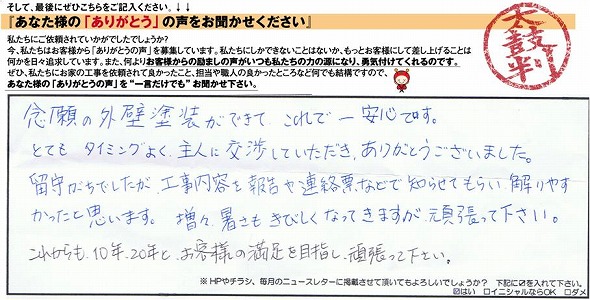 そして、最後にぜひこちらをご記入ください。↓↓
『あなた様の「ありがとう」の声をお聞かせください』
私たちにご依頼されていかがでしたでしょうか?
今、私たちはお客様から「ありがとうの声」を募集しています。私たちにしかできないことはないか、もっとお客様にして差し上げることは
何かを日々追求しています。また、何よりお客様からの励ましの声がいつも私たちの力の源になり、勇気付けてくれるのです。
ぜひ、私たちにお家の工事を依頼されて良かったこと、担当や職人の良かったところなど何でも結構ですので、
あなた様の「ありがとうの声」を“一言だけでも”お聞かせ下さい。
太鼓判
念願の外壁塗装ができて、これで一安心です。
とても タイミングよく、主人に交渉していただき、ありがとうございました。
留守がちでしたが、工事内容を報告や連絡票などで知らせてもらい、解りやす
かったと思います。 増々、暑さもきびしくなってきますが、頑張って下さい。
これからも、10年、20年と、お客様の満足を目指し、頑張って下さい。
※HPやチラシ、毎月のニュースレターに掲載させて頂いてもよろしいでしょうか? 下記に☑を入れて下さい。
☑はい □イニシャルならOK □ダメ